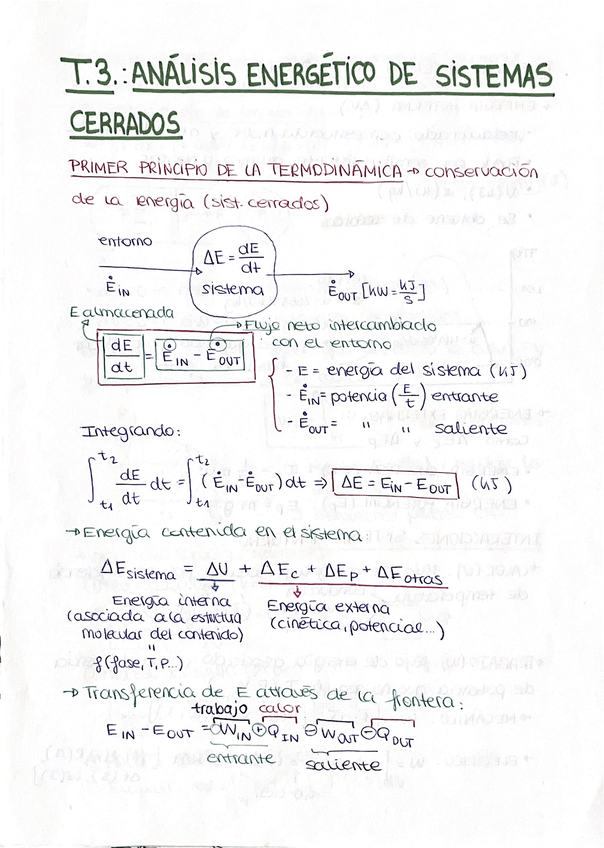 T.3.: ANÁLISIS ENERGÉTICO DE SISTEMAS
CERRADOS
PRIMER PRINCIPIO DE LA TERMODINÁMICA → conservación
de la energía (sist. cerrados)
entorno
ΔE = dE/dt
Ė IN
sistema
Ė OUT [kW = kJ/s]
E almacenada
→ Flujo neto intercambiado
con el entorno
dE/dt = Ė IN - Ė OUT :
- E = energía del sistema (kJ)
- Ė IN = potencia (E/t) entrante
- Ė OUT = " " saliente
Integrando:
∫t1^t2 dE/dt dt = ∫t1^t2 (Ė IN - Ė OUT) dt ⇒ ΔE = E IN - E OUT (kJ)
→ Energía contenida en el sistema:
ΔE sistema = ΔU + ΔEc + ΔEp + ΔE otras
Energía interna
(asociada a la estructua
molecular del contenido)
"
f(fase, T, P...)
Energía externa
(cinética, potencial...)
→ Transferencia de E através de la frontera:
trabajo calor
E IN - E OUT = ⊕W IN ⊕Q IN ⊖W OUT ⊖Q OUT
entrante saliente